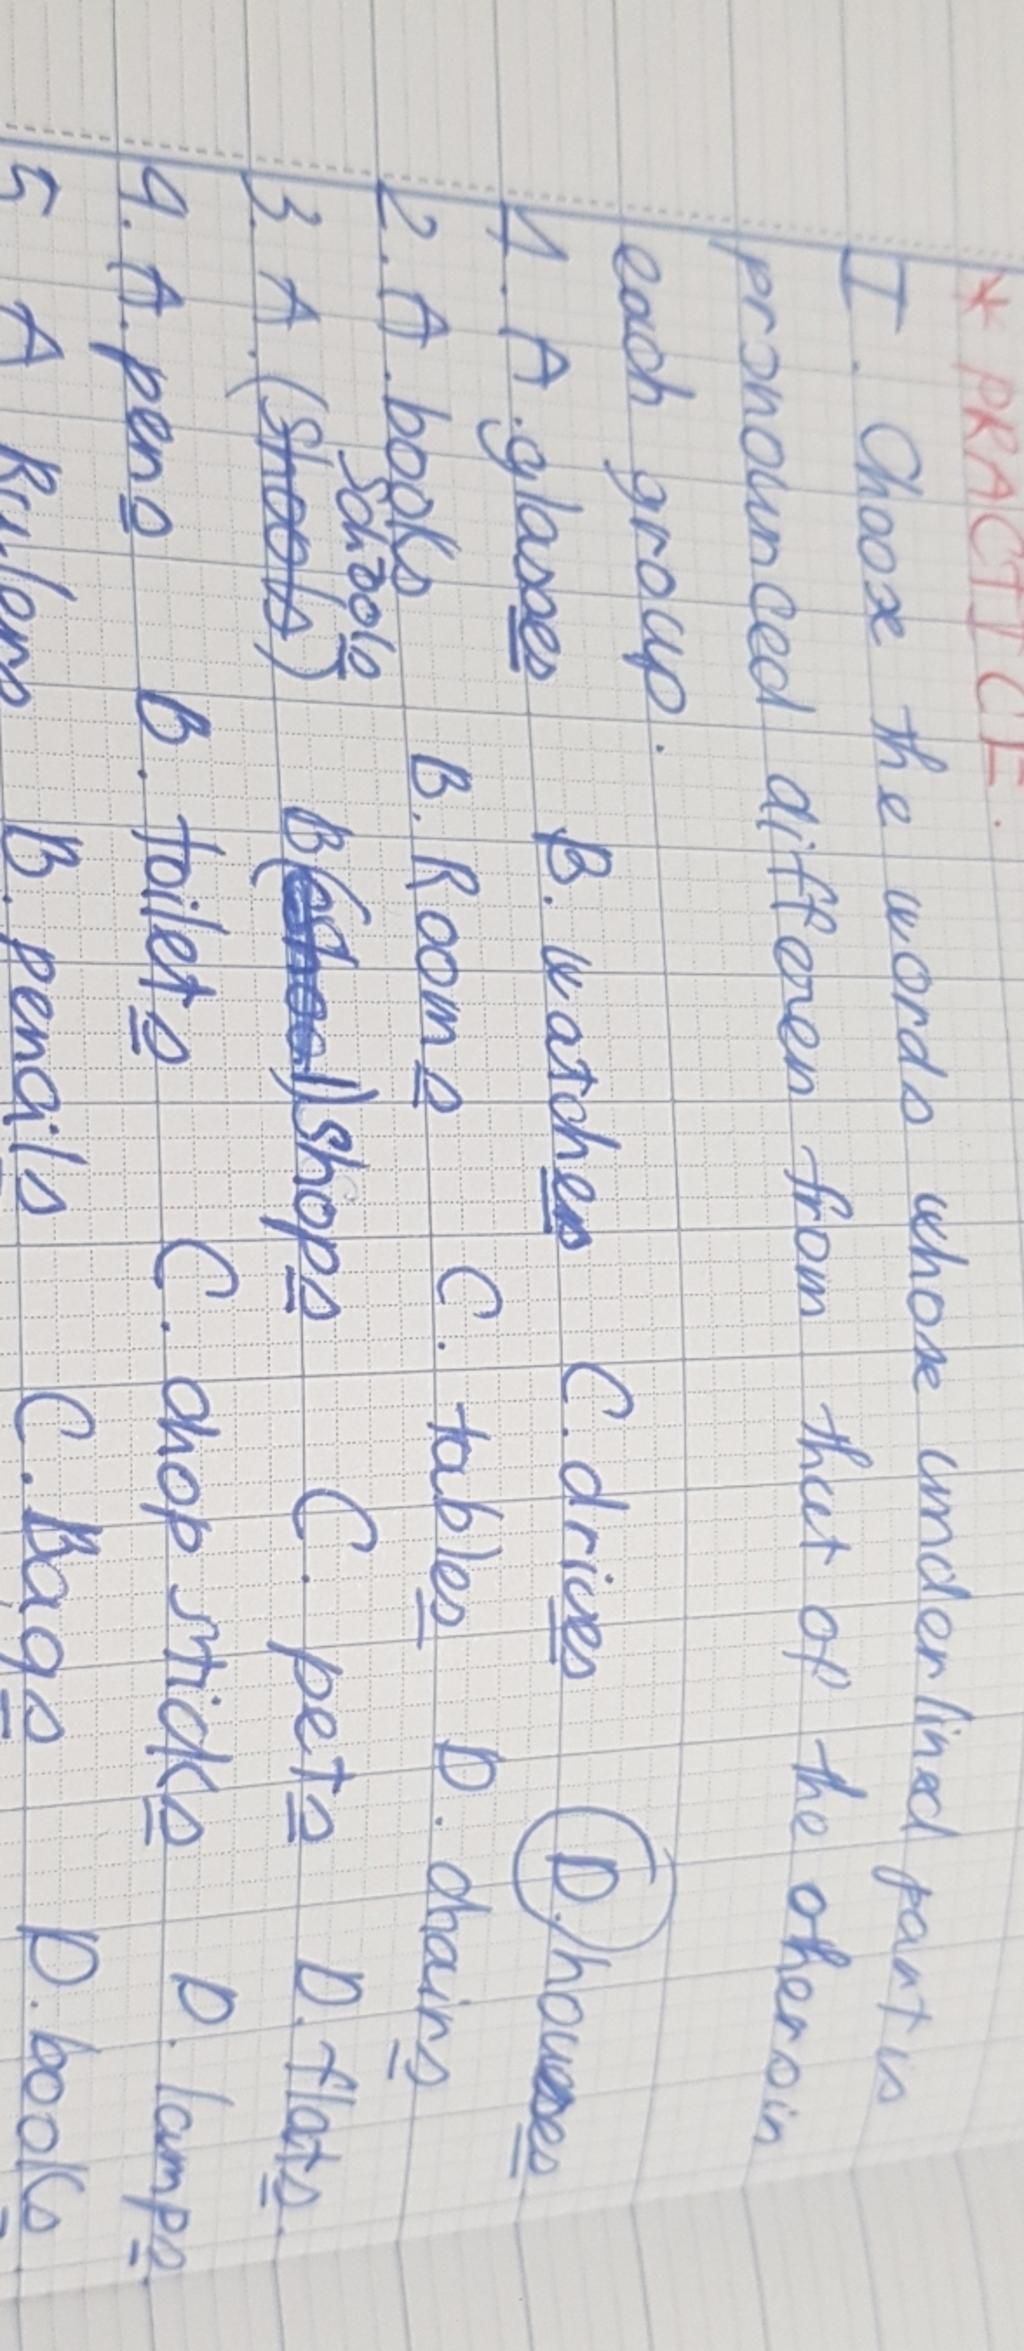 * PRACTICE.
I. Choose the words whose underlined part is
pronounced differen from that of the others in
each group.
1. A. glasses B. watches C. drives D. houses
2. A. books B. Rooms C. tables D. chairs
Schools
3. A. (Shools) B. ( ) Shops C. pets D. flats.
4. A. pens B. toilets C. chopsticks D. lamps
5 A Rulers B. pencils C. Bags D. books